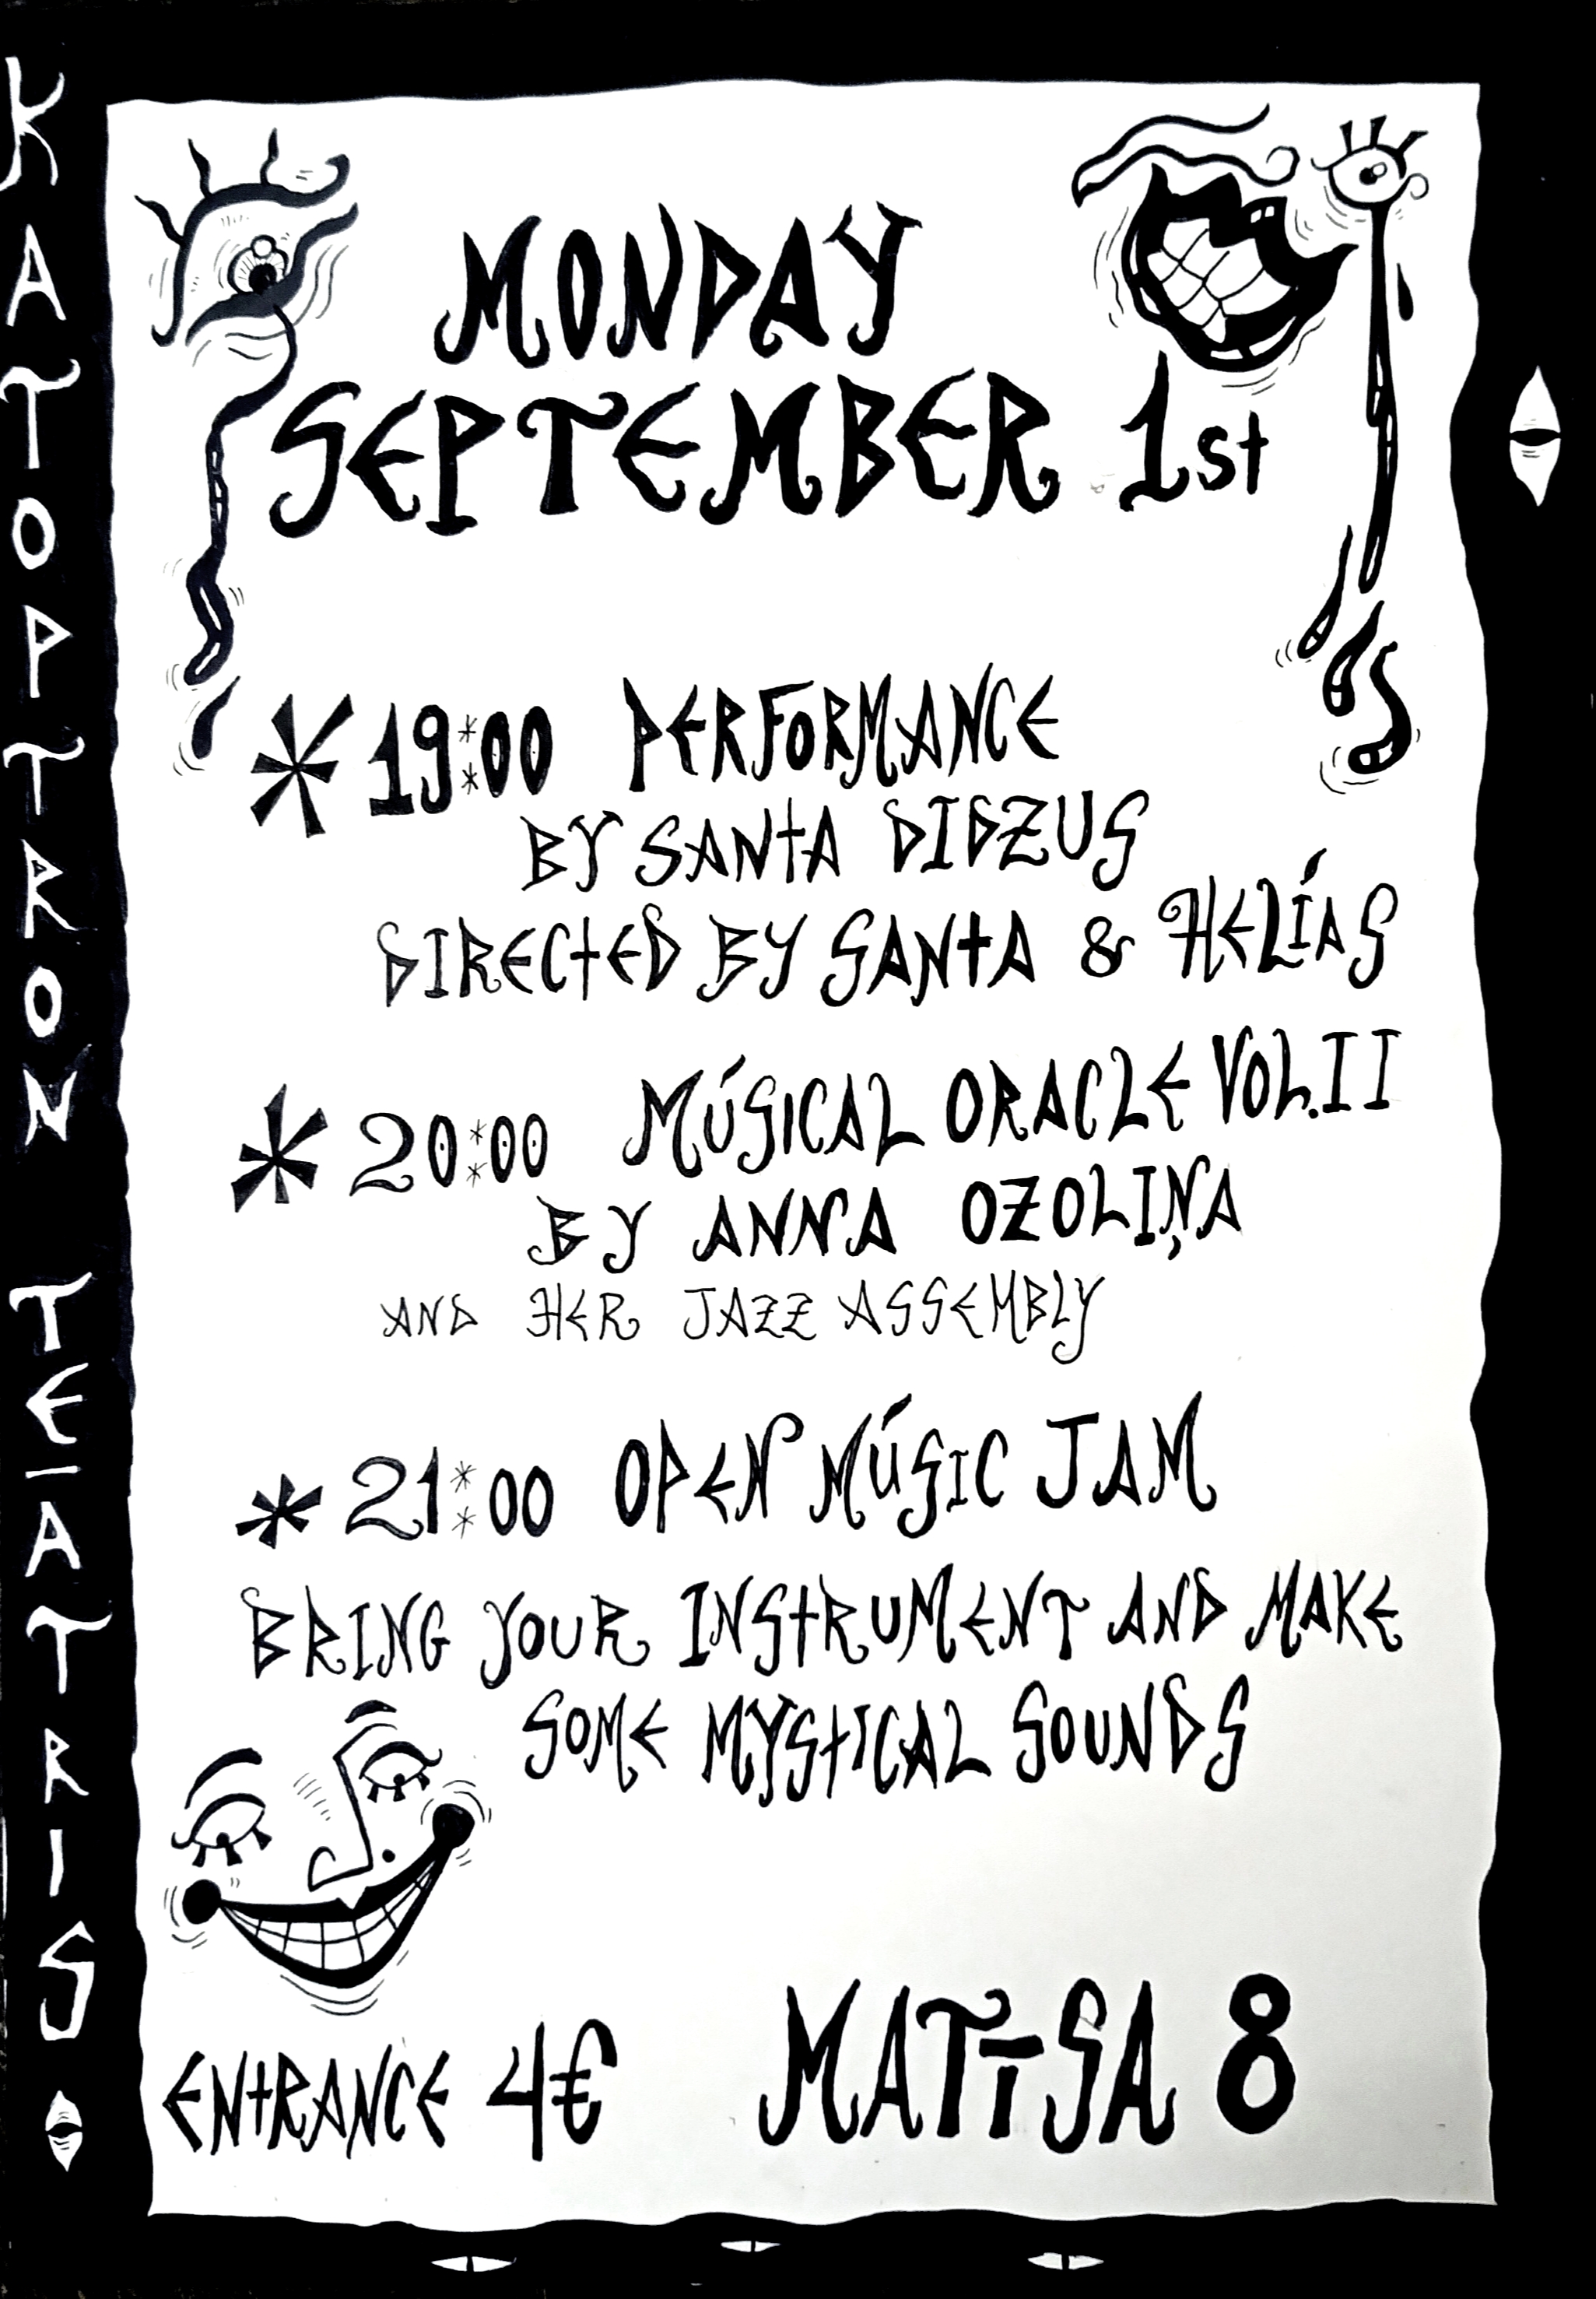 KATOPTRON TEĀTRIS
MONDAY
SEPTEMBER 1st
* 19:00 PERFORMANCE
BY SANTA DIDZUS
DIRECTED BY SANTA & HELÍAS
* 20:00 MÚSICAL ORACLE VOL.II
BY ANNA OZOLIŅA
AND HER JAZZ ASSEMBLY
* 21:00 OPEN MÚSIC JAM
BRING YOUR INSTRUMENT AND MAKE
SOME MYSTICAL SOUNDS
ENTRANCE 4€ MATĪSA 8